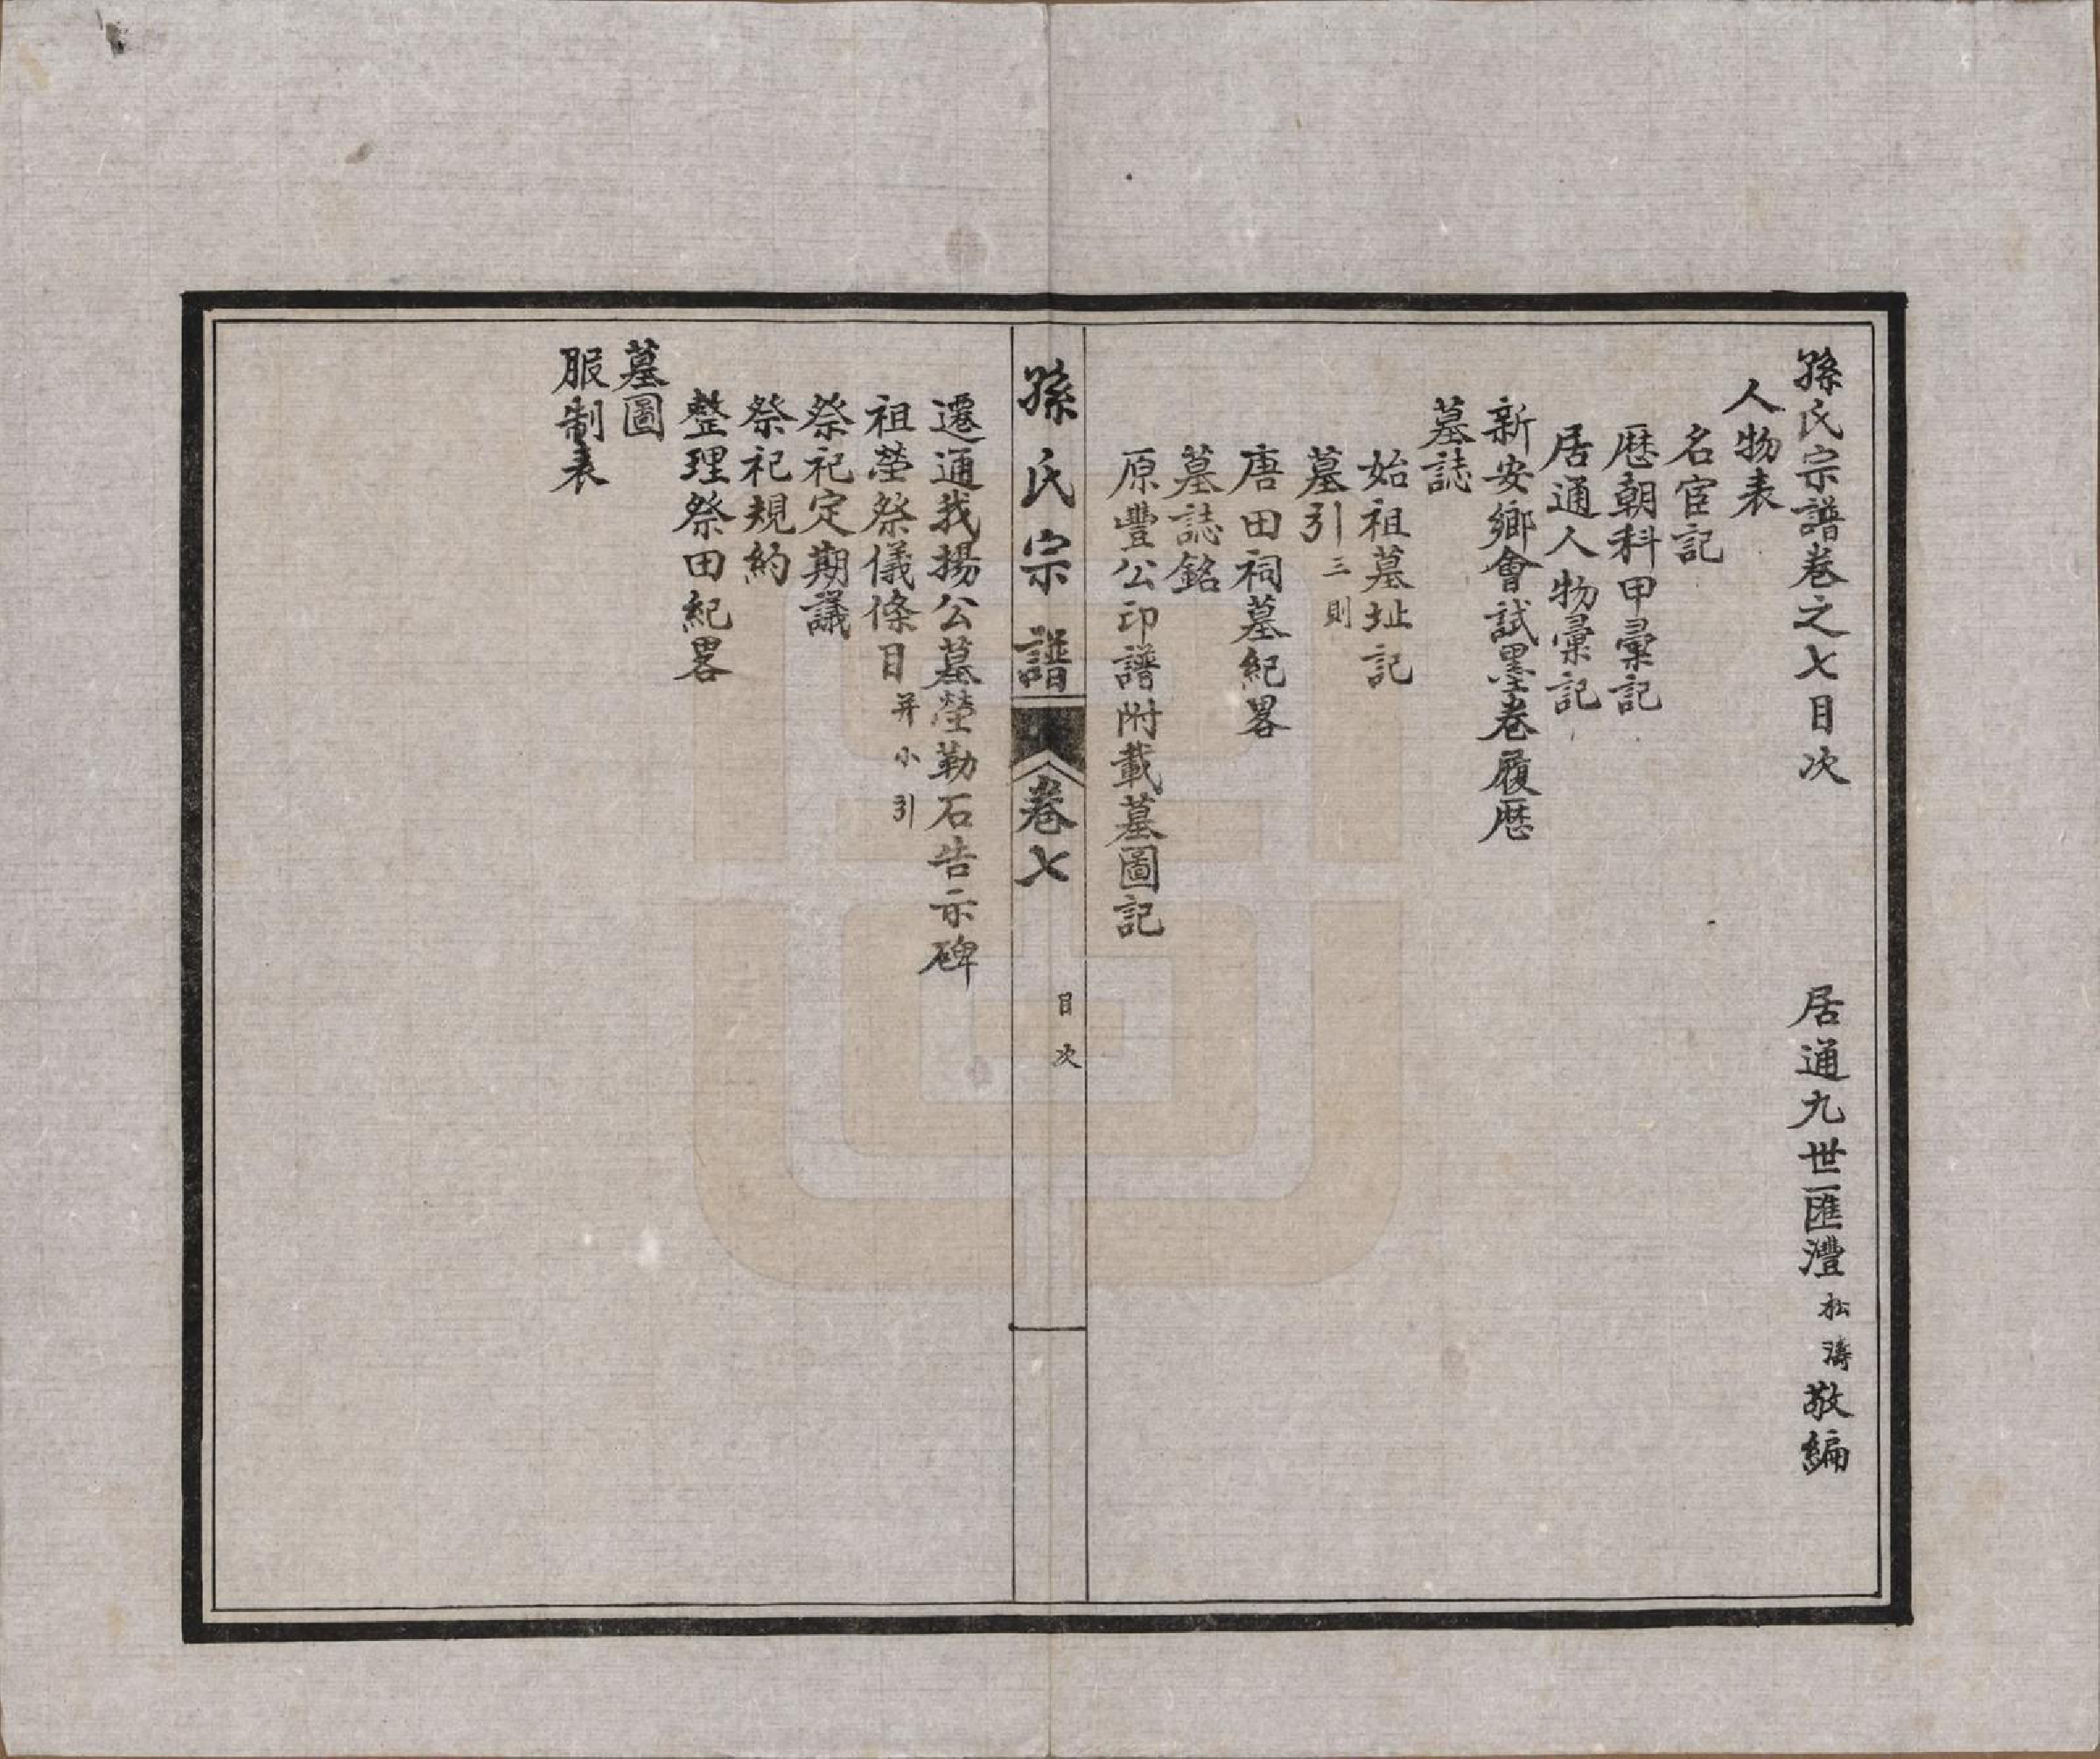 孫氏宗譜卷之七目次　居通九世匯灃松濤敬編
人物表
名宦記
歷朝科甲彙記
居通人物彙記
新安鄉會試墨卷履歷
墓誌
始祖墓址記
墓引三則
唐田祠墓紀畧
墓誌銘
原豐公印譜附載墓圖記
孫氏宗譜　卷七　目次
遷通我揚公墓塋勒石告示碑
祖塋祭儀條目并小引
祭祀定期議
祭祀規約
整理祭田紀畧
墓圖
服制表